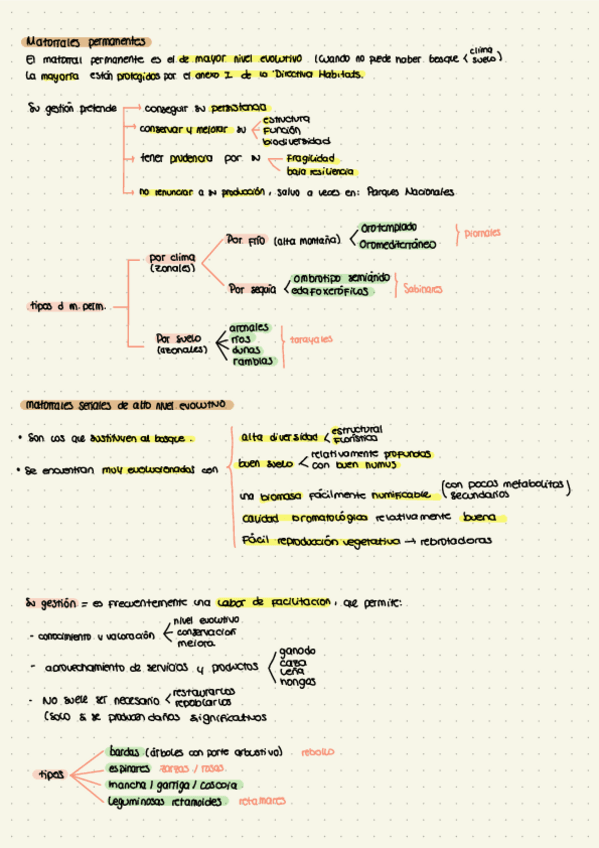 Matorrales permanentes
El matorral permanente es el de mayor nivel evolutivo. (Cuando no puede haber bosque < clima suelo).
La mayoría están protegidos por el anexo I de la "Directiva Habitats.
Su gestión pretende
conseguir su persistencia
conservar y mejorar su
estructura
función
biodiversidad
tener prudencia por su
Fragilidad
baja resiliencia
no renunciar a su producción, salvo a veces en: Parques Nacionales
tipos d m. perm.
por clima
(zonales)
Por frío (alta montaña)
Orotemplado
Oromediterráneo
piornales
Por sequía
ombrotipo semiárido
edafoxerófilos
Sabinares
Por suelo
(azonales)
arenales
ríos
dunas
ramblas
tarayales
matorrales seriales de alto nivel evolutivo
• Son los que sustituyen al bosque.
• Se encuentran muy evolucionados con
alta diversidad
estructural
Florística
buen suelo
relativamente profundos
con buen humus
una biomasa fácilmente humificable (con pocos metabolitos secundarios)
calidad bromatológica relativamente buena
Fácil reproducción vegetativa → rebrotadoras
Su gestión = es frecuentemente una labor de facilitación, que permite:
- conocimiento y valoración
nivel evolutivo
conservación
mejora
- aprovechamiento de servicios y productos
ganado
caza
leña
hongos
- No suele ser necesario
restaurarlos
repoblarlos
(Solo si se producen daños significativos
tipos
bardas (árboles con porte arbustivo) rebollo
espinares zarzas / rosas
mancha / garriga / coscoja
leguminosas retamoides retamares